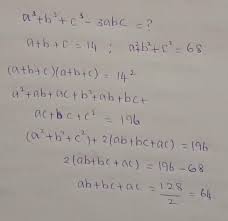 a³+b³+c³-3abc = ?
a+b+c = 14 ; a²+b²+c² = 68
(a+b+c)(a+b+c) = 14²
a²+ab+ac+b²+ab+bc+
ac+bc+c² = 196
(a²+b²+c²)+2(ab+bc+ac) = 196
2(ab+bc+ac) = 196-68
ab+bc+ac = 128/2 = 64